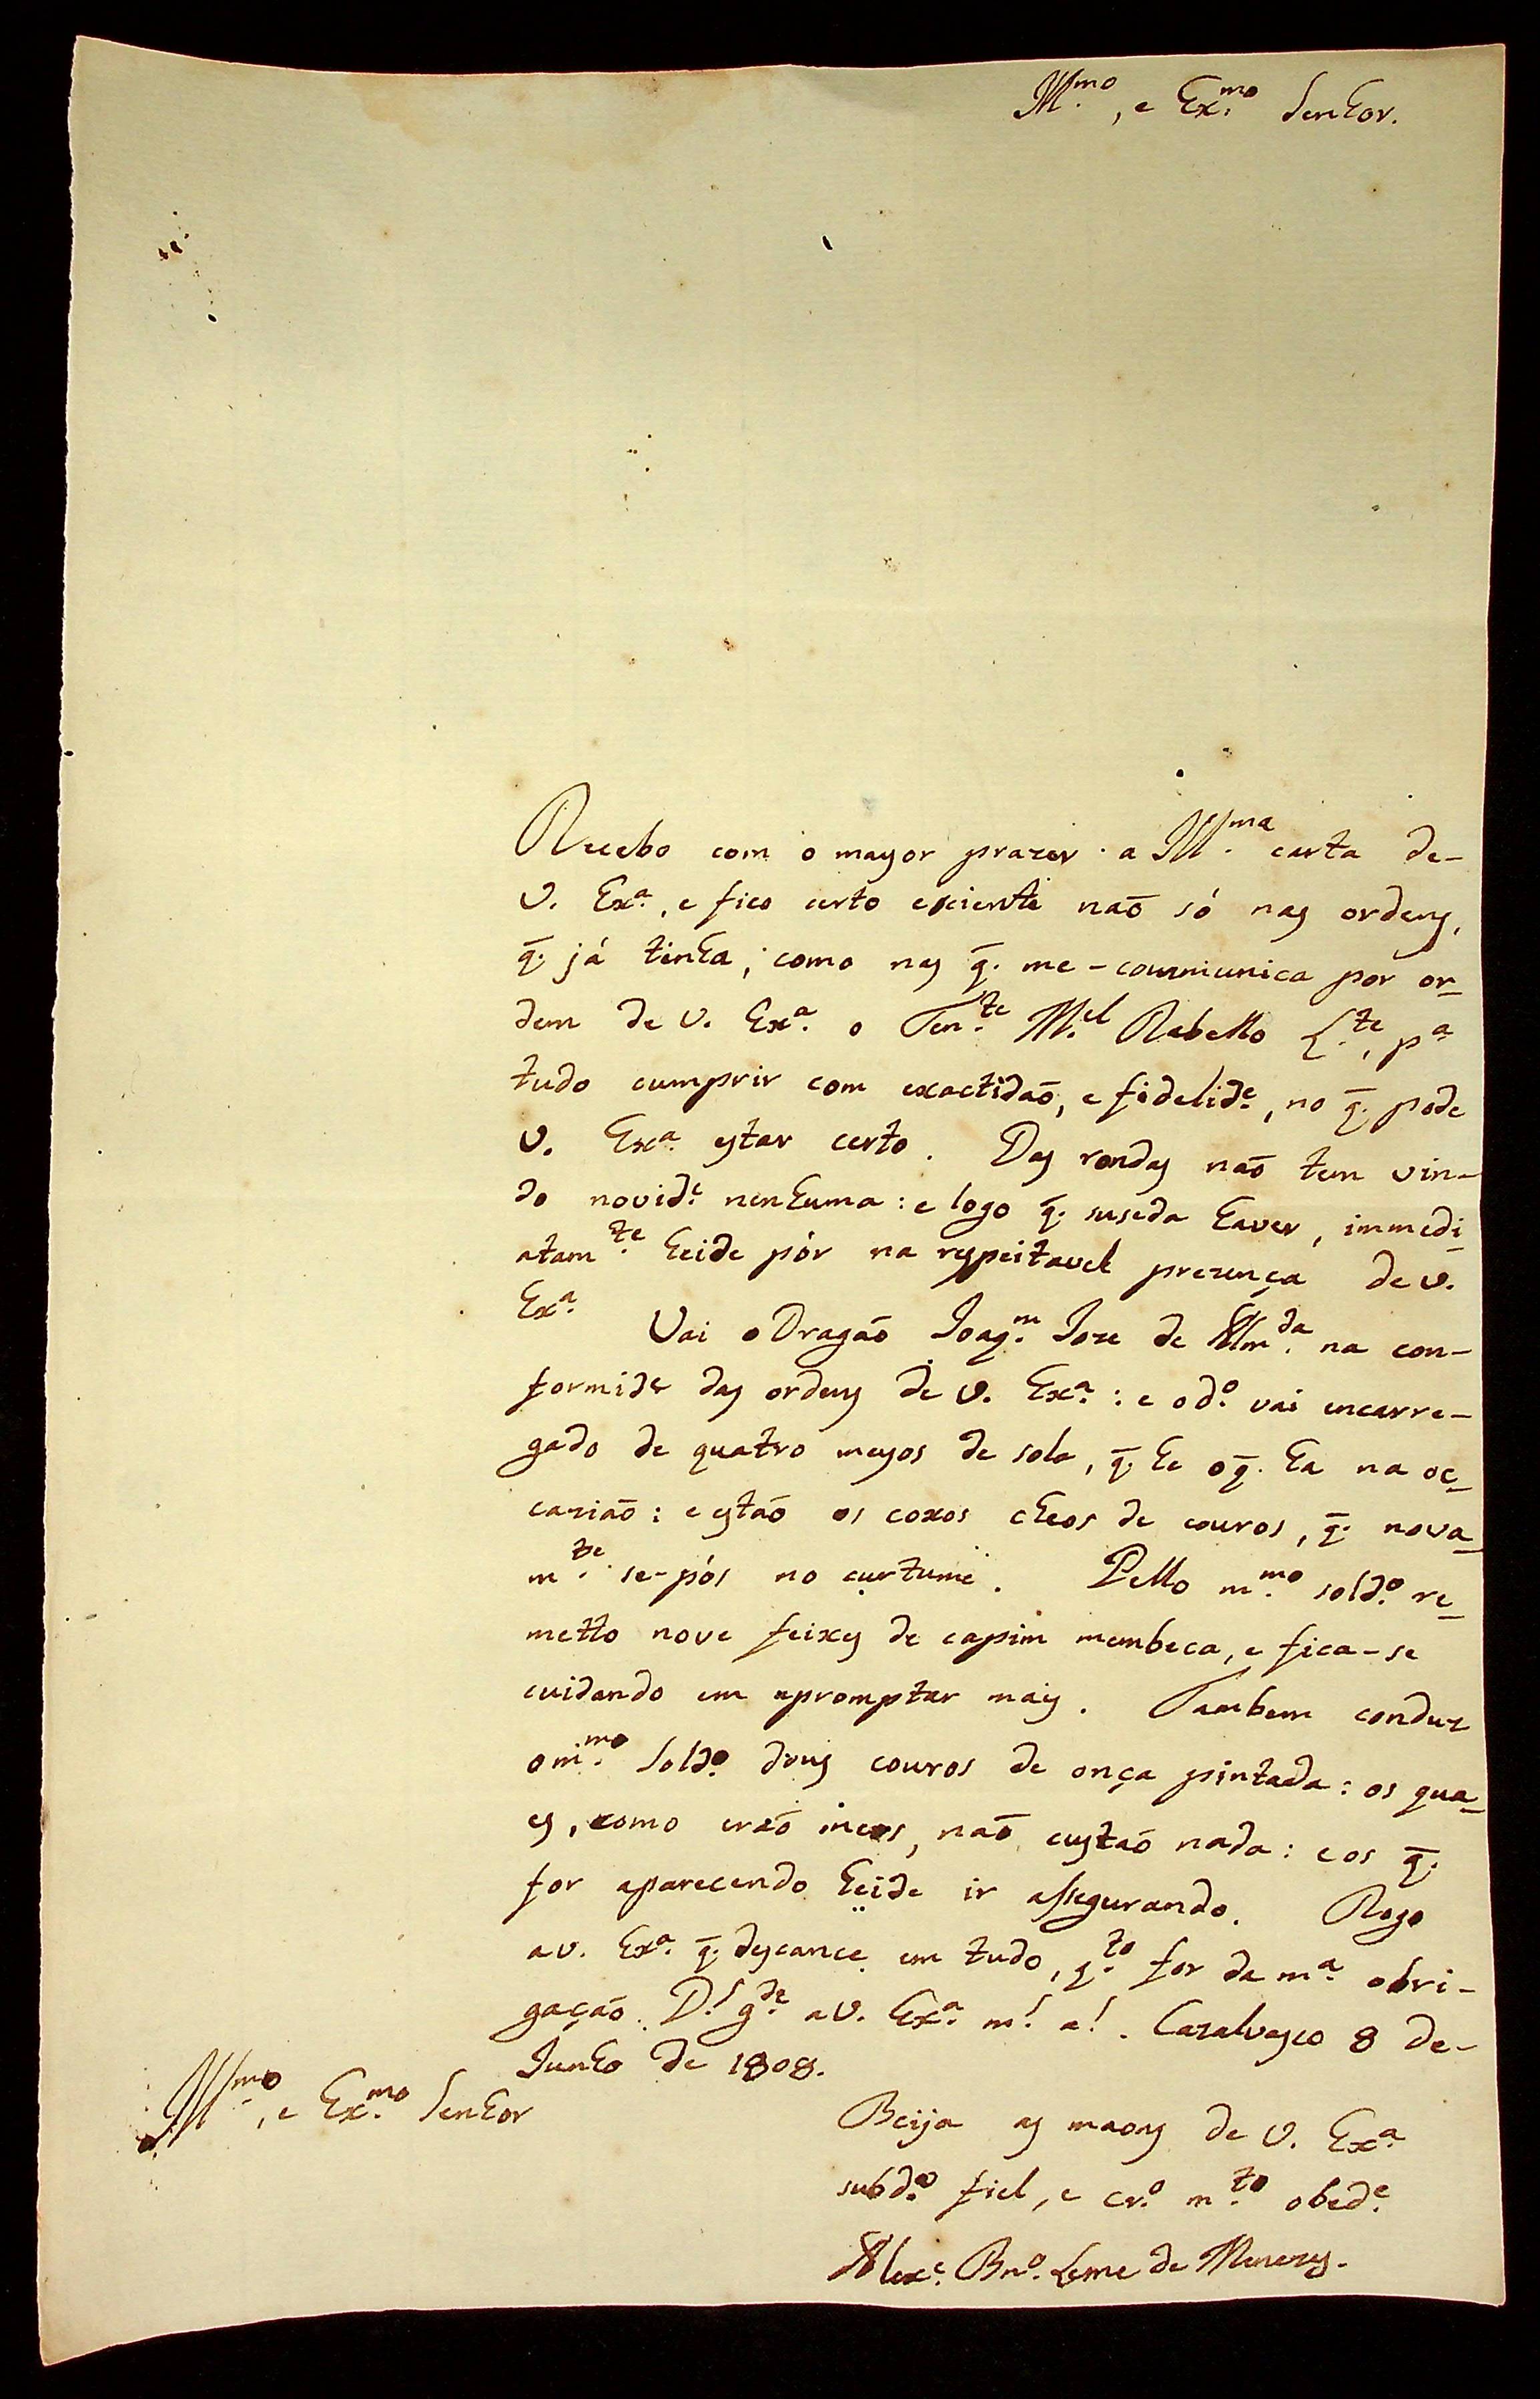 Ill.mo, e Ex.mo Senhor.
Recebo com o mayor prazer a Ill.ma carta de-
V. Ex.a, e fico certo esciente naõ só nas ordens,
q̃. já tinha, como nas q̃. me-communica por or-
dem de V. Ex.a o Ten.te M.el Rebello L.te, p.a
tudo cumprir com exactidaõ, e fidelid.e, no q̃. pode
V. Ex.a estar certo. Das rondas naõ tem vin-
do novid.e nenhuma: e logo q̃. suseda haver, immedi-
atam.te heide pôr na respeitavel prezença de V.
Ex.a Vai o Dragaõ Joaq.m Joze de Alm.da na con-
formid.e das ordens de V. Ex.a: e o d.o vai encarre-
gado de quatro meyos de sola, q̃. he o q̃. ha na oc-
caziaõ: e estaõ os coxos cheos de couros, q̃. nova-
m.te se-pôs no curtume. Pello m.mo sold.o re-
metto nove feixes de capim membeca, e fica-se
cuidando em apromptar mais. Tambem conduz
o m.mo sold.o dous couros de onça pintada: os qua-
es, como eraõ meos, naõ custaõ nada: e os q̃.
for aparecendo heide ir assegurando. Rogo
a V. Ex.a q̃. descance em tudo, q.to for da m.a obri-
gaçaõ. D.s g.de a V. Ex.a m.s a.s. Cazalvasco 8 de-
Junho de 1808.
Ill.mo, e Ex.mo Senhor
Beija as maons de V. Ex.a
subd.o fiel, e cr.o m.to obed.e
Alex.e Bn.o Leme de Menezes.